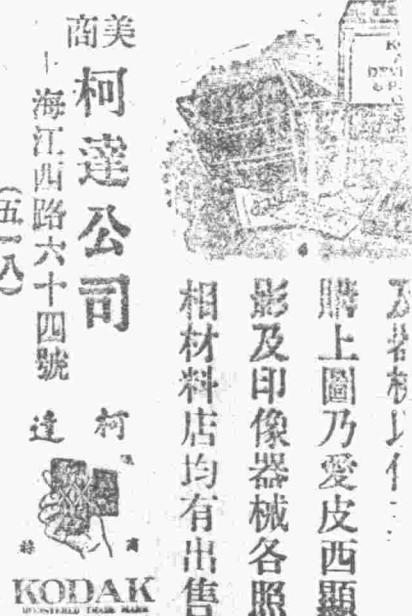 購上圖乃愛皮西顯
影及印像器械各照
相材料店均有出售
美商
柯達公司
海江西路六十四號
(五一八)
柯達
商標
KODAK
REGISTERED TRADE MARK